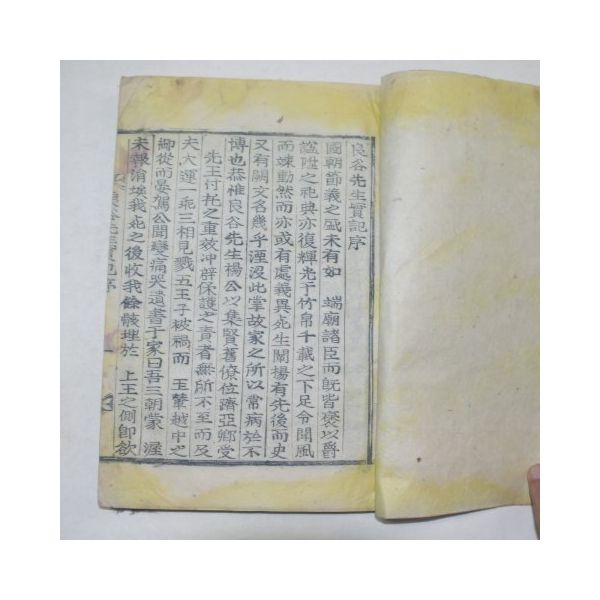 良谷先生實記序
國朝節義之盛未有如 端廟諸臣而旣皆褒以爵
諡隆之祀典亦復輝光于竹帛千載之下足令聞風
而竦動然而亦或有處義異死生闡揚有先後而史
又有闕文名幾乎湮沒此掌故家之所以常病於不
博也恭惟良谷先生楊公以集賢舊僚位躋亞卿受
先王付托之重效冲辟保護之責者無所不至而及
夫大運一乖三相見戮五王子被禍而 玉輦越中之
御從而晏駕公聞變痛哭遺書于家曰吾三朝蒙 渥
未報涓埃我死之後收我餘骸埋於 上王之側卽欲
良谷先生實記序 一